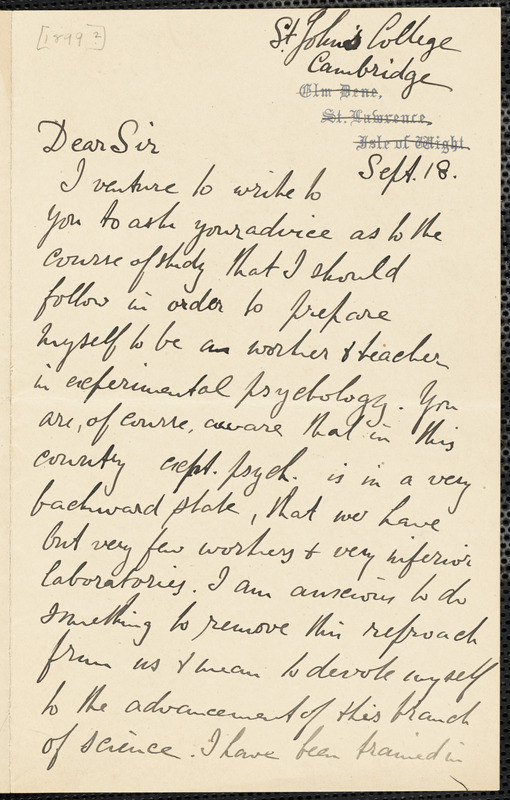 [1899?]
St. John's College
Cambridge
Elm Dene,
St. Lawrence,
Isle of Wight.
Sept. 18.
Dear Sir
I venture to write to
you to ask your advice as to the
course of study that I should
follow in order to prepare
myself to be a worker & teacher
in experimental psychology. You
are, of course, aware that in this
country expt. psych. is in a very
backward state, that we have
but very few workers & very inferior
laboratories. I am anxious to do
something to remove this reproach
from us & mean to devote myself
to the advancement of this branch
of science. I have been trained in